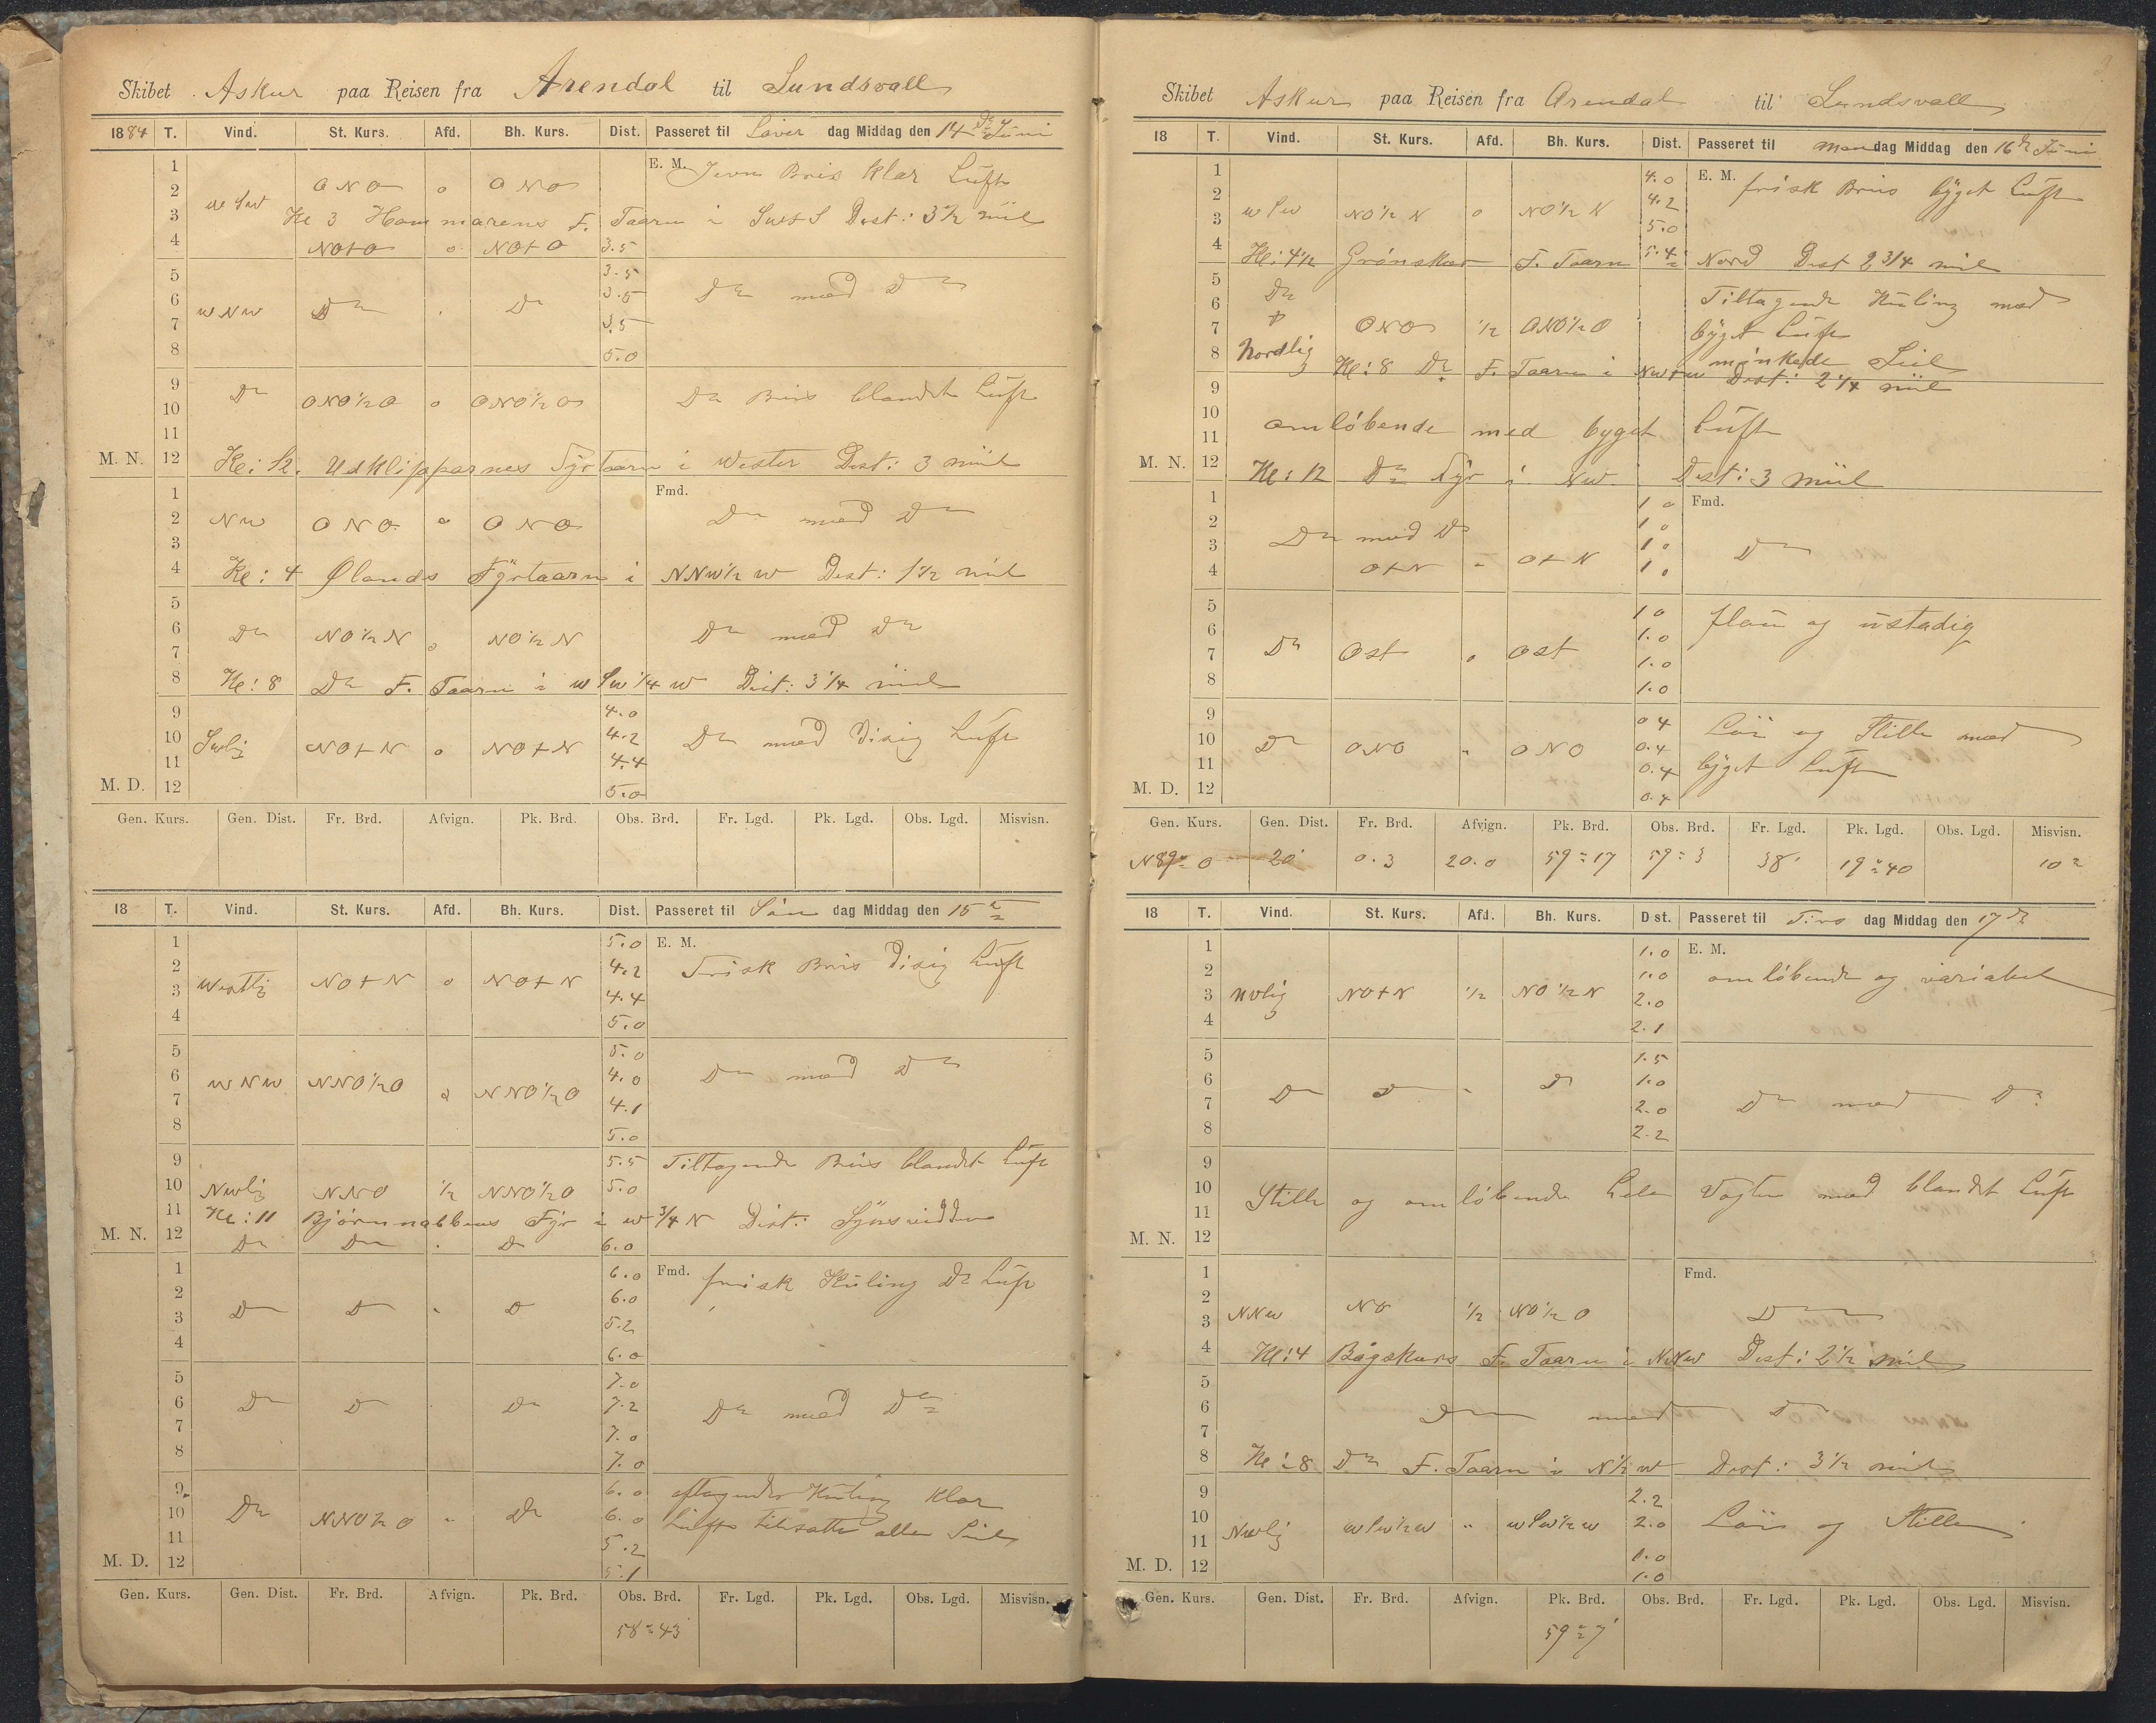 Skibet Askur paa Reisen fra Arendal til Sundsvall
1884 T. Vind. St. Kurs. Afd. Bh. Kurs. Dist. Passeret til Löver dag Middag den 14 de Juni
1 E. M. Jevn Bris klar Luft
2 ONO o ONO
3 Kl 3 Hammarens F. Taarn i Dist: 3½ miil
4 NO+O o NO+O 3.5
5 3.5
6 WNW Do Do 3.5 Do med Do
7 3.5
8 5.0
9
10 Do ONO½O o ONO½O Do Bris blandet Luft
11
M. N. 12 Kl: 12. Udklipparnes Fyrtaarn i Wester Dist: 3 miil
1 Fmd.
2 NW ONO o ONO Do med Do
3
4 Kl: 4 Ølands Fÿrtaarn i NNW½W Dist: 1½ miil
5
6 Do NO½N o NO½N Do med Do
7
8 Kl: 8 Do F. Taarn i WSW¼W Dist: 3¼ miil
9 4.0
10 Swlig NO+N o NO+N 4.2 Do med Disig Luft
11 4.4
M. D. 12 5.0
Gen. Kurs. Gen. Dist. Fr. Brd. Afvign. Pk. Brd. Obs. Brd. Fr. Lgd. Pk. Lgd. Obs. Lgd. Misvisn.
18 T. Vind. St. Kurs. Afd. Bh. Kurs. Dist. Passeret til Søn dag Middag den 15
1 5.0 E. M.
2 4.2 Frisk Bris Disig Luft
3 Westlig NO+N o NO+N 4.4
4 5.0
5 5.0
6 WNW NNO½O NNO½O 4.0 Do med Do
7 4.1
8 5.0
9 5.5 Tiltagende Bris blandet Luft
10 Nwlig NNO ½ NNO½O 5.0
11 Kl: 11 Bjørnnabbens Fyr i W¾N Dist: Synsvidden
M. N. 12 Do Do Do 6.0
1 6.0 Fmd. frisk Kuling Do Luft
2 6.0
3 Do Do Do 5.2
4 6.0
5 7.0
6 Do Do Do 7.2 Do med Do
7 7.0
8 7.0
9 6.0 aftagende Kuling klar
10 Do NNO½O " Do 6.0 Luft tilsatte alle Seil
11 5.2
M. D. 12 5.1
Gen. Kurs. Gen. Dist. Fr. Brd. Afvign. Pk. Brd. Obs. Brd. Fr. Lgd. Pk. Lgd. Obs. Lgd. Misvisn.
58°43'
Skibet Askur paa Reisen fra Arendal til Sundsvall
18 T. Vind. St. Kurs. Afd. Bh. Kurs. Dist. Passeret til Man dag Middag den 16 de Juni
1 4.0 E. M. frisk Bris bÿget Luft
2 4.2
3 WSW NO½N o NO½N 5.0
4 Kl: 4½ Grönskär F. Taarn 5.4 i Nord Dist 2¾ miil
5 Do Tiltagende Kuling med
6 bÿget Luft
7 ONO ½ ONO½O
8 Nordlig minkede Seil
Kl: 8 Do F. Taarn i NW+W Dist: 2¼ miil
9
10 omløbende med byget Luft
11
M. N. 12 Kl: 12 Do Fyr i NW Dist: 3 miil
1 1 0 Fmd.
2 Do med Do 1 0
3 1 0 Do
4 O+N " O+N 1 0
5 1 0 flau og ustadig
6 1.0
7 Do Ost o Ost 1.0
8 1.0
9 0 4 Löi og Stille med
10 Do ONO " ONO 0.4
11 0.4 bÿget Luft
M. D. 12 0.4
Gen. Kurs. Gen. Dist. Fr. Brd. Afvign. Pk. Brd. Obs. Brd. Fr. Lgd. Pk. Lgd. Obs. Lgd. Misvisn.
N89°O 20' 0.3 20.0 59°17 59°3 38' 19°40 10°
18 T. Vind. St. Kurs. Afd. Bh. Kurs. Dist. Passeret til Tirs dag Middag den 17 de
1 1.0 E. M.
2 1.0 omløbende og variabel
3 Nvlig NO+N ½ NO½N 2.0
4 2.1
5 1.5
6 Do Do " Do 1.0
7 2.0 Do med Do
8 2.2
9
10 Stille og omløbende hele Vagten med blandet Luft
11
M. N. 12
1 Fmd.
2 NNW NO ½ NO½O Do
3
4 Kl: 4 Bogskärs F. Taarn i NNW Dist: 2½ miil
5
6 Do med Do
7
8 Kl: 8 Do F. Taarn i N½W Dist: 3½ miil
9 2.2
10 Nwlig WSW½W " WSW½W 2.0 Löi og Stille
11 1.0
M. D. 12 1.0
Gen. Kurs. Gen. Dist. Fr. Brd. Afvign. Pk. Brd. Obs. Brd. Fr. Lgd. Pk. Lgd. Obs. Lgd. Misvisn.
59°7'